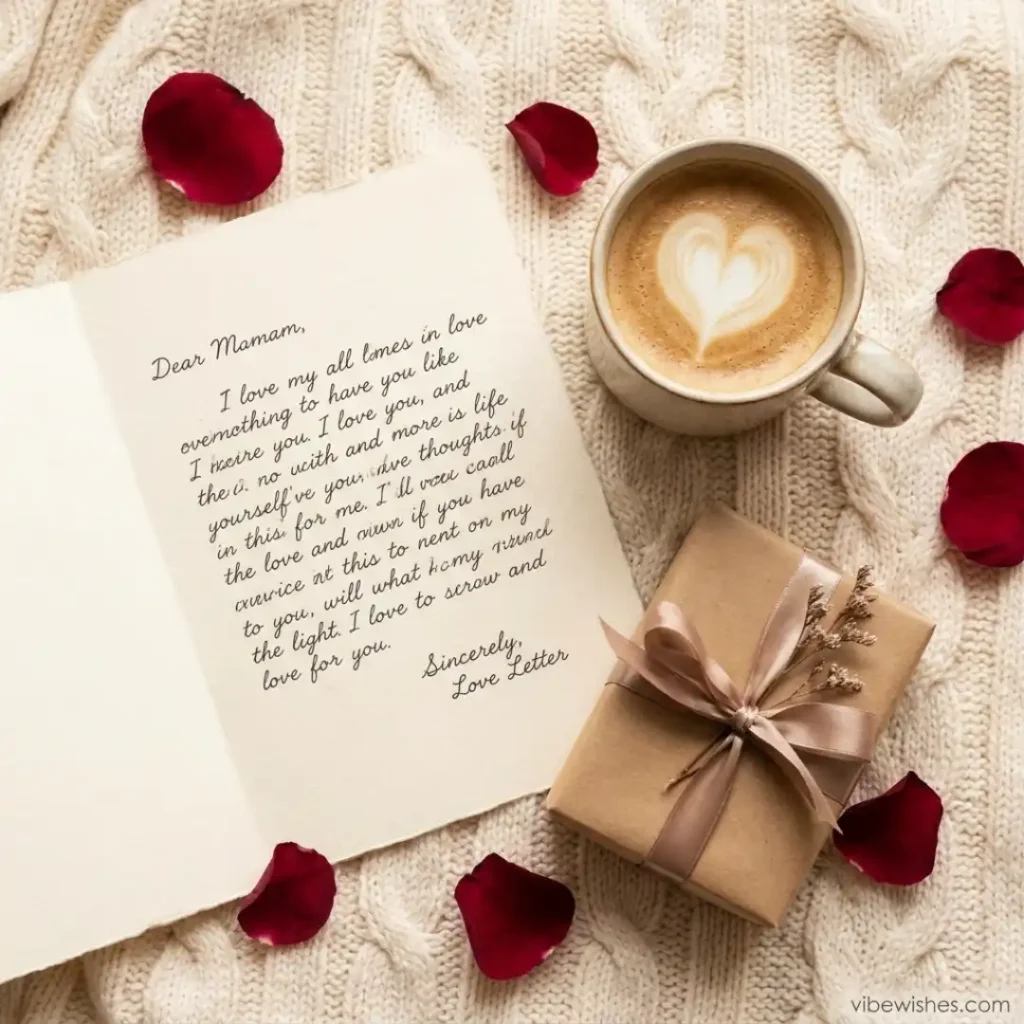 Dear Mamam,
I love my all lomes in love
ovemcthing to have you like
I you. I love you, and
the no with and more is life
yourself've you, thoughts. if
in this for me. I'll call
the love and if you have
at this to nent on my
to you, will what my
the light. I love to scrow and
love for you.
Sincerely,
Love Letter
vibewishes.com